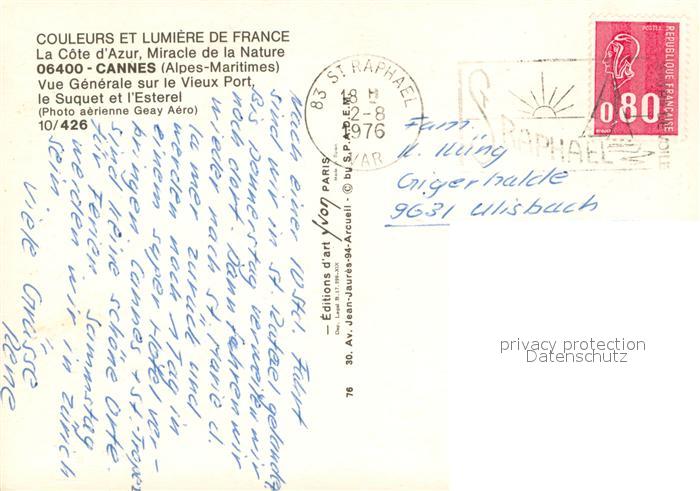 COULEURS ET LUMIÈRE DE FRANCE
La Côte d'Azur, Miracle de la Nature
06400 - CANNES (Alpes-Maritimes)
Vue Générale sur le Vieux Port,
le Suquet et l'Esterel
(Photo aèrienne Geay Aéro)
10/426
Nach einer 10 Std. Fahrt
sind wir in St. Rafael gelandet
Bis Donnerstag verweilen wir
noch dort. Dann fahren wir
wieder nach St. Marie d.
la mer zurück und
werden noch 1 Tag in
einem super Hotel ver-
bringen Cannes + St. Tropez
sind keine schöne Orte
für Ferien Sammstag
werden wir in Zürich
sein
Viele Grüsse
Rene
— Éditions d'art Yvon PARIS
Dép. Légal
76 30. Av. Jean-Jaurès-94-Arcueil - © by S.P.A.D.E.M.
83 ST RAPHAEL
18 H
2-8
1976
VAR
ST RAPHAEL
POSTES
REPUBLIQUE FRANÇAISE
0,80
Fam.
K. Küng
Gigerhalde
9631 Ulisbach
privacy protection
Datenschutz